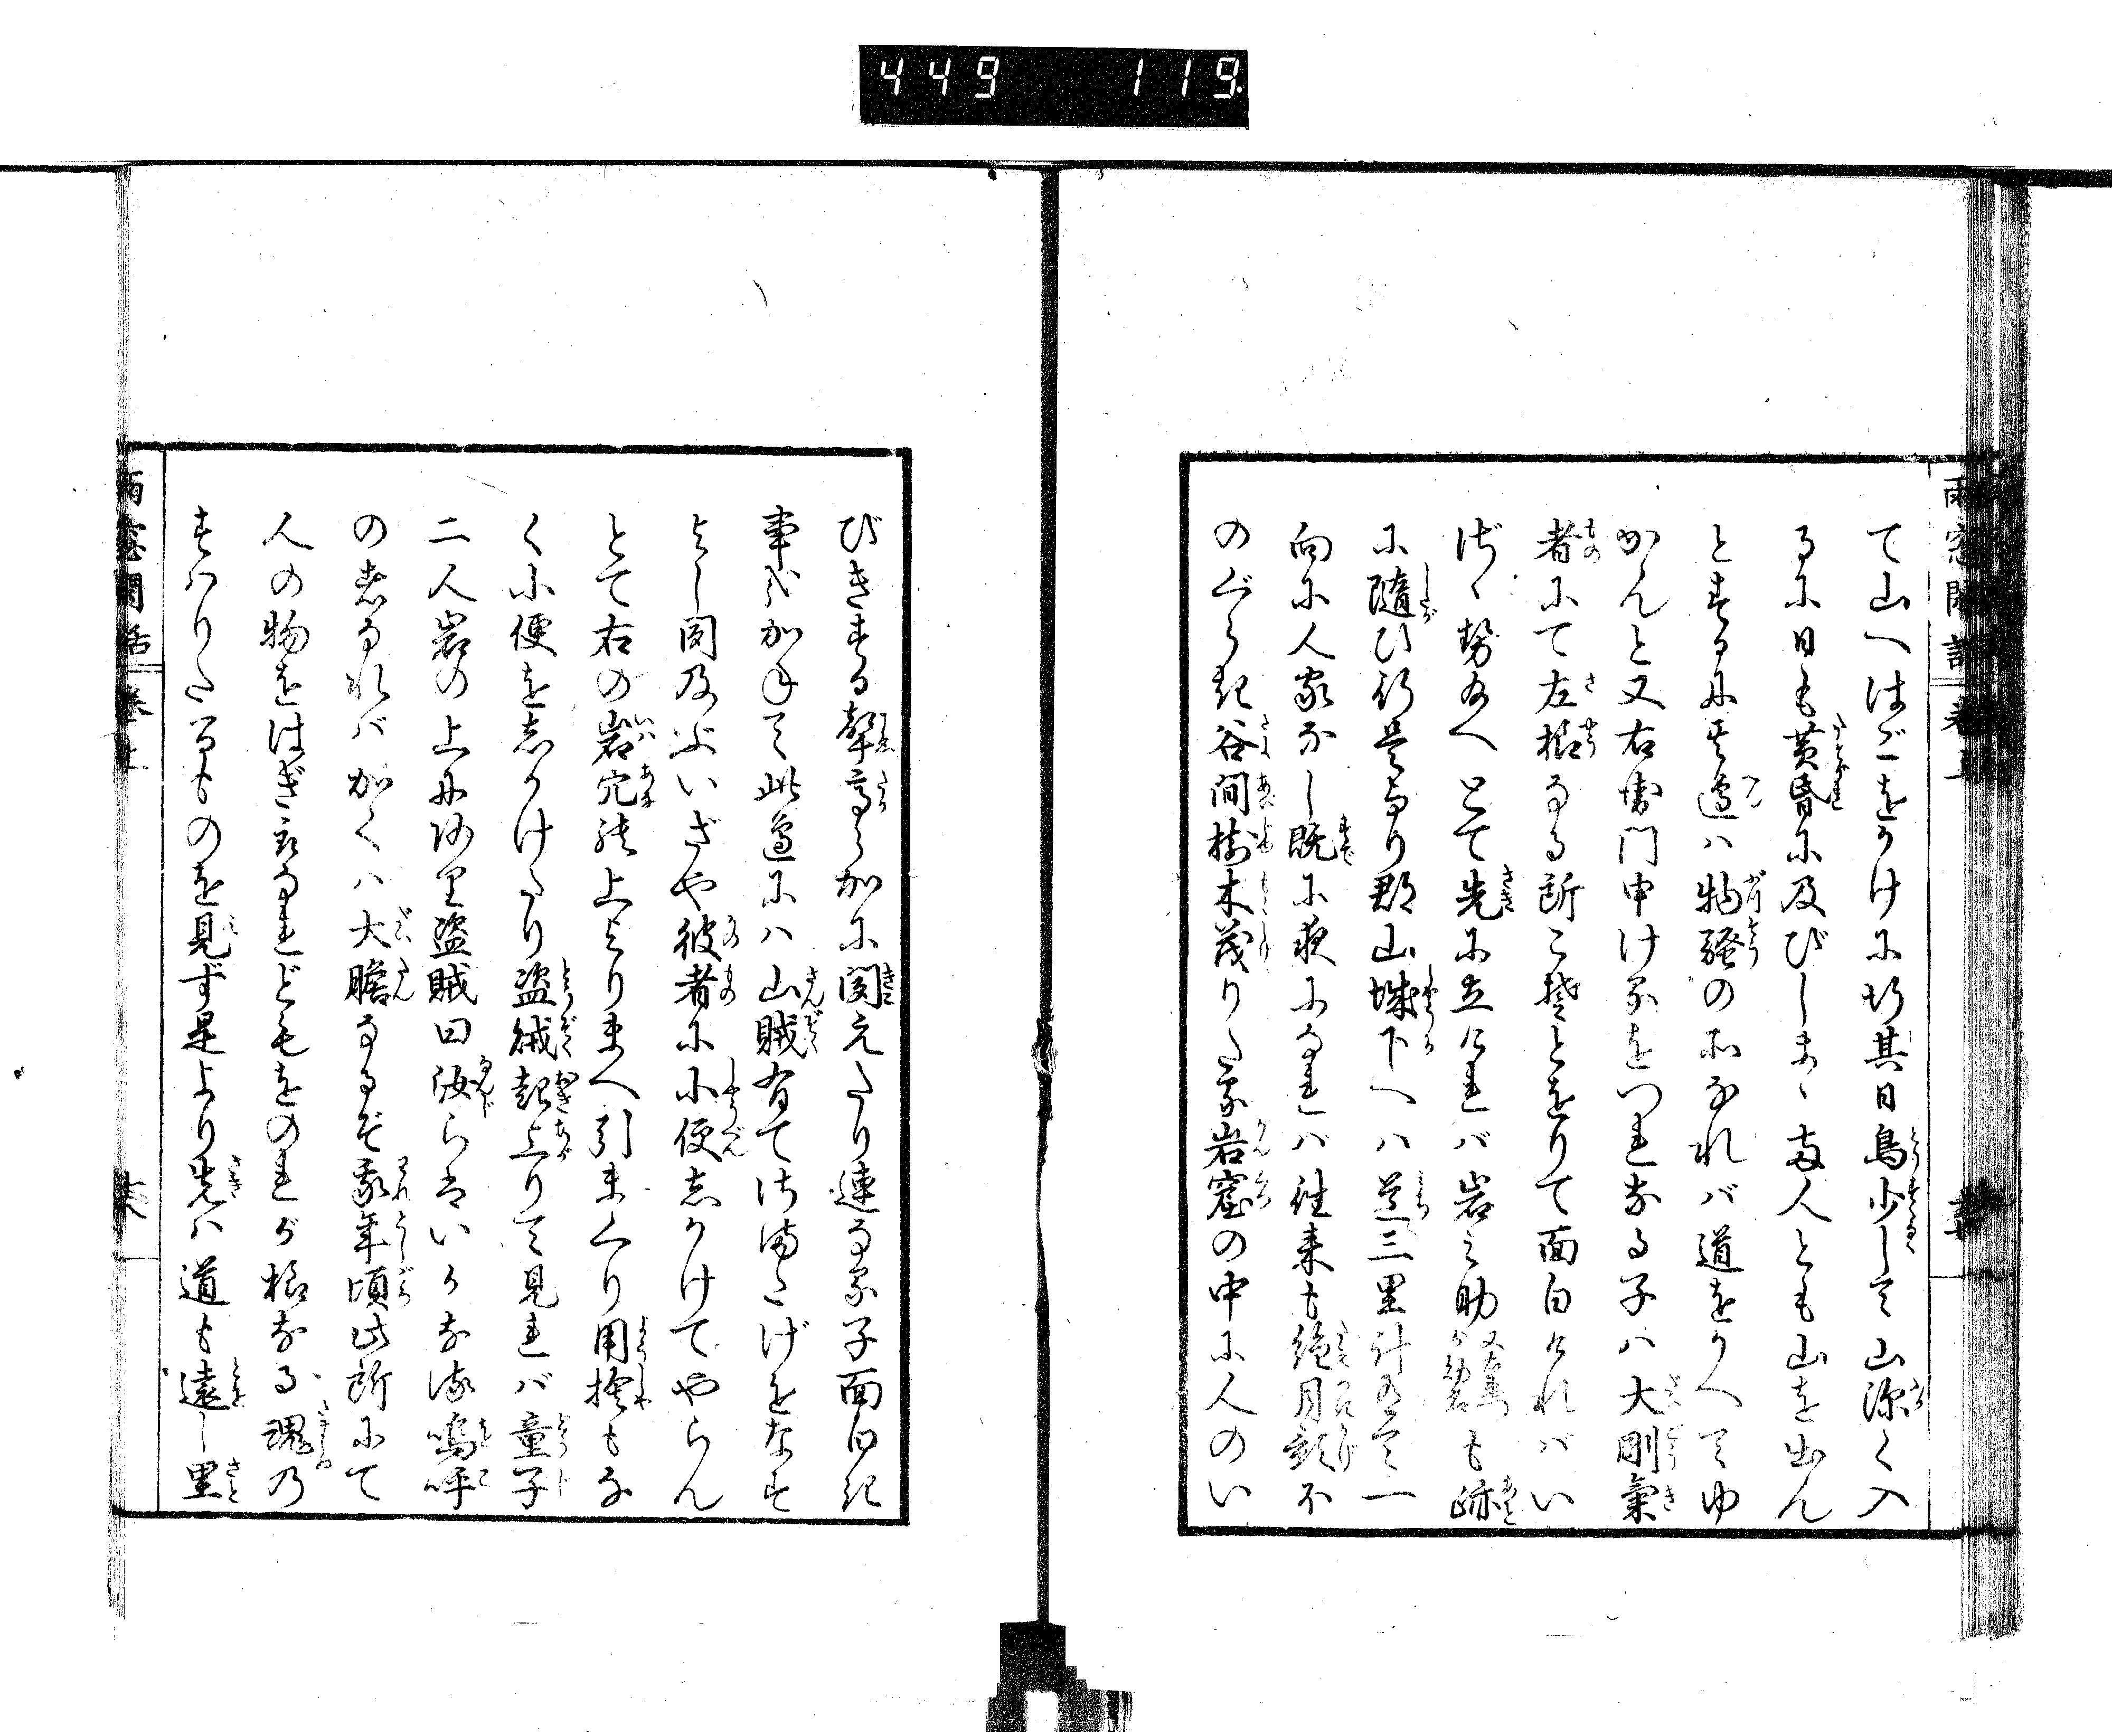 449 119.
雨窓閑話 巻上
て山へはごをかけに行其日鳥少して山深く入
るに日も黄昏に及びしまゝ両人とも山を出ん
とするに其邊ハ物騒の所なれバ道をかへてゆ
かんと又右衛門申けるをつれなる子ハ大剛氣
者にて左様なる所こそとをりて面白けれバい
ざゝせ給へとて先に立けれバ岩之助も跡
に随ひ行是より郡山城下へハ道三里計有て一
向に人家なし既に夜になれハ往来も絶月影不
のぐらき谷間樹木茂りたる岩窟の中に人のい
びきする聲高らかに聞えたり連なる子面白き
事哉かねて此邊にハ山賊有てさまたげをなす
よし聞及ぶいざや彼者に小便しかけてやらん
とて右の岩穴の上よりまへ引まくり用捨もな
く小便をしかけたり盗賊起上りて見れバ童子
二人岩の上に有り盗賊曰汝らはいかなる嗚呼
の者なれバかくハ大膽なるぞ我年頃此所にて
人の物をはぎ取なれどもをのれが様なる瑰の
すハりたるものを見ず是より先ハ道も遠し里
雨窓閑話 巻上